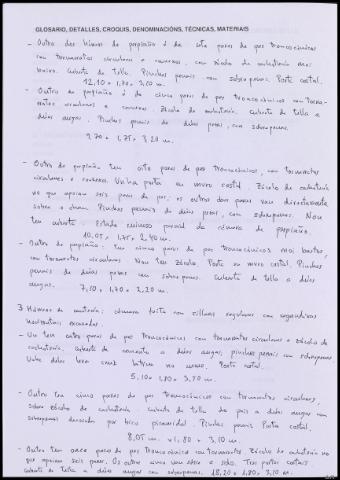 GLOSARIO, DETALLES, CROQUIS, DENOMINACIÓNS, TÉCNICAS, MATERIAIS
- Outro dos hórreos de perpiaño é de oito pares de pes troncocónicos
con tornarratos circulares e convexos, con zócolo de cachotaría moi
baixo. Cuberta de tella. Pinches penais con sobrepenas. Porta costal.
12,10 x 1,70 x 3,10 m.
- Outro de perpiaño é de cinco pares de pes troncocónicos con torna-
rratos circulares e convexos. Zócolo de cachotaría. Cuberta de tella a
dúas augas. Pinches penais de dúas pezas, con sobrepenas.
9,70 x 1,75 x 3,20 m.
- Outro de perpiaño ten oito pares de pes troncocónicos, con tornarratos
circulares e convexos. Unha porta no novo costal. Zócolo de cachotaría
no que apoian seis pares de pes; os outros dous pares van directamente
sobre o chan. Pinches penais de dúas pezas, con sobrepenas. Non
ten cuberta. Estado ruinoso parcial da cámara de perpiaño.
10,05 x 1,75 x 2,40 m.
- Outro de perpiaño: ten cinco pares de pes troncocónicos moi baixos,
con tornarratos circulares. Non ten zócolo. Porta no novo costal. Pinches
penais de dúas pezas con sobrepenas. Cuberta de tella a dúas
augas. 7,50 x 1,70 x 2,20 m.
3 Hórreos de cantería: cámara feita con sillares regulares con
horizontais escavadas.
- Un ten oito pares de pes troncocónicos con tornarratos circulares e zócolo de
cachotaría, cuberta de cemento a dúas augas, pinches penais con sobrepenas
Unha delas leva cruz no novo. Porta costal.
5,10 x 1,80 x 3,70 m.
- Outro ten cinco pares de pes troncocónicos con tornarratos circulares,
sobre zócolo de cachotaría. Cuberta de tella do país a dúas augas con
sobrepenas por bico piramidal. Pinches penais. Porta costal.
8,05 m. x 1,80 x 3,10 m.
- Outro ten once pares de pes troncocónicos con tornarratos. Zócolo de cachotaría no
que apoian seis pares. Os outros cinco van sobre o chan. Tres portas costais.
Cuberta de tella a dúas augas con sobrepenas. 18,20 x 1,80 x 3,10 m.